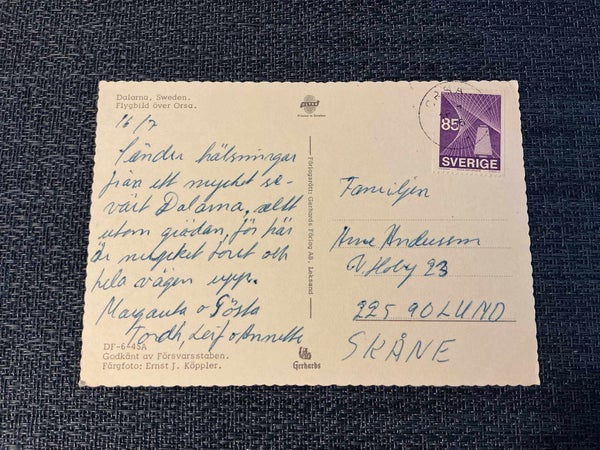 Dalarna, Sweden.
Flygbild över Orsa.
16/7
Sänder hälsningar
från ett mycket se-
värt Dalarna, allt
utom grödan, för här
är mycket torrt och
hela vägen upp.
Margareta o Gösta
Tordh, Leif o Annette
DF-6-45A
Godkänt av Försvarsstaben.
Färgfoto: Ernst J. Köppler.
Printed in Sweden
Förlagsrätt: Gerhards Förlag AB, Leksand
Gerhards
85
SVERIGE
Familjen
Arne Andersson
V. Hoby 23
225 90 LUND
SKÅNE